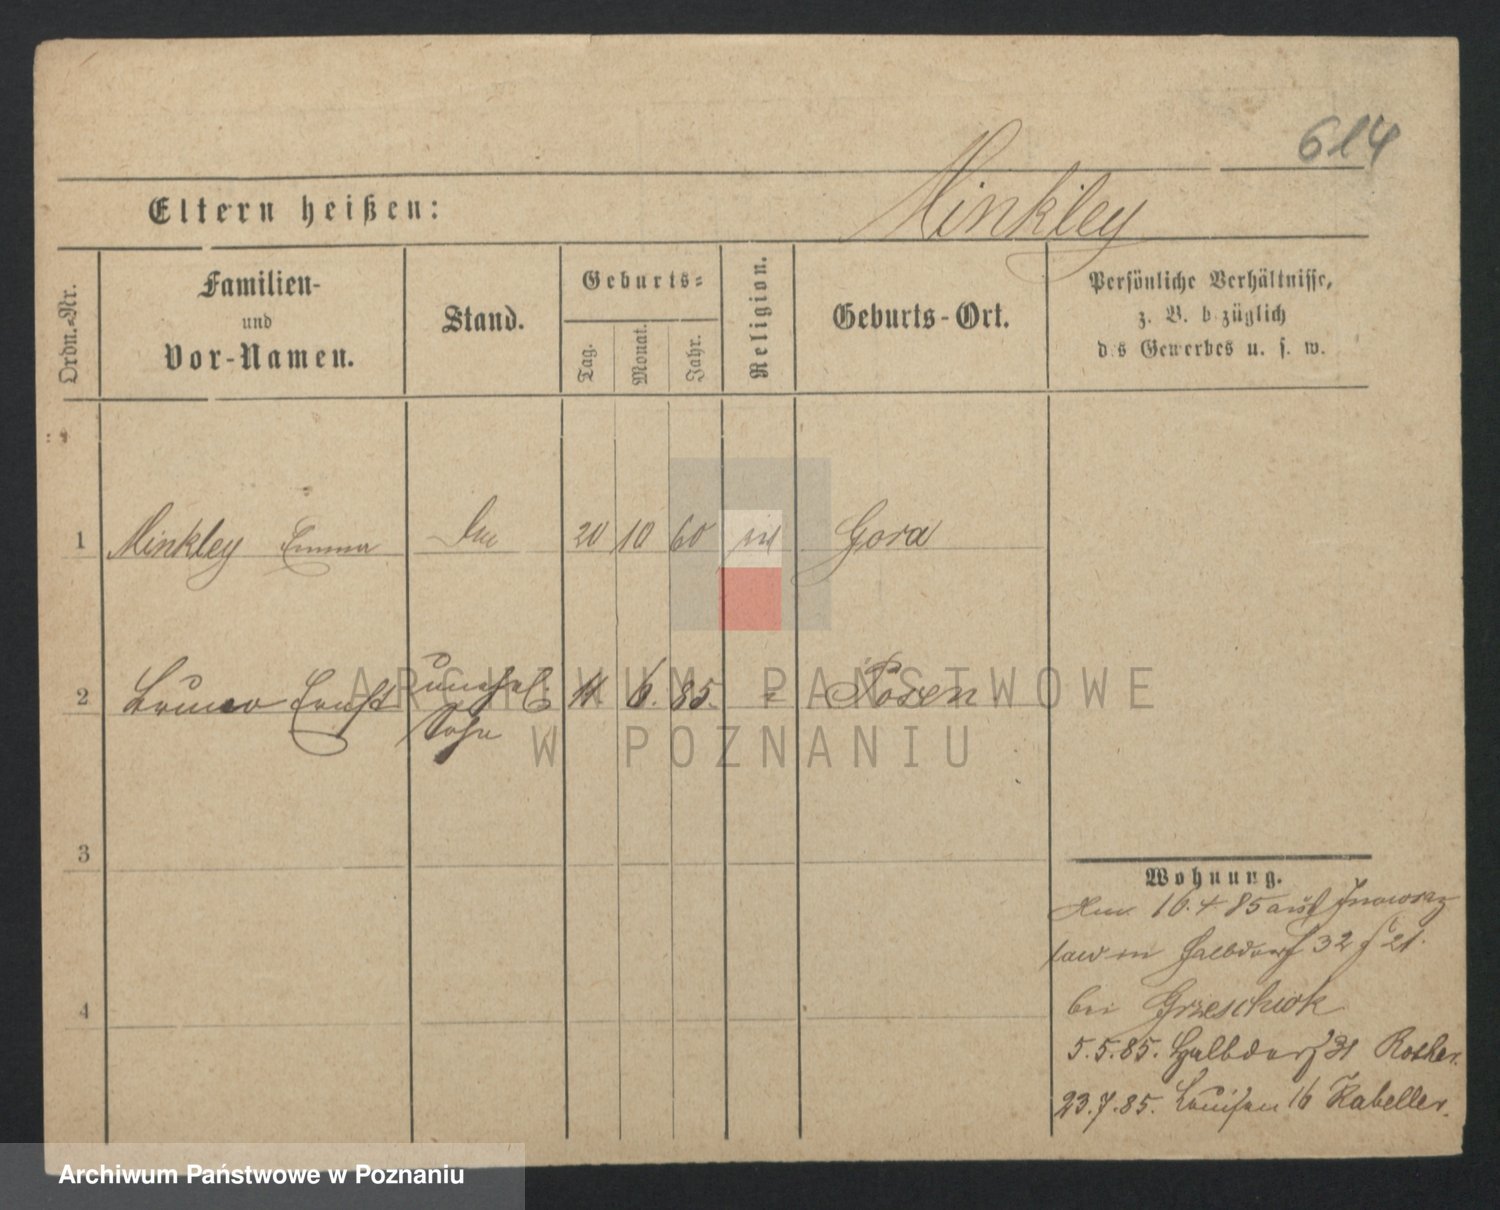 614
Eltern heißen:
Minkley
Ordn.-Nr.
Familien-
und
Vor-Namen.
Stand.
Geburts-
Tag.
Monat.
Jahr.
Religion.
Geburts-Ort.
Persönliche Verhältnisse,
z. B. b züglich
d s Gewerbes u. s. w.
1 Minkley Emma 20 10 60 Gora
2 Bruno Ernst unehel. 11 6. 85. Posen
Sohn
3
4
Wohnung.
16. 4 85 aus Inowraz
law in Halbdorf 32
bei Grzeschiok
5.5.85. Halbdorf 31
23.7.85. Louisen 16 Kabeller.
ARCHIWUM PAŃSTWOWE
W POZNANIU
Archiwum Państwowe w Poznaniu